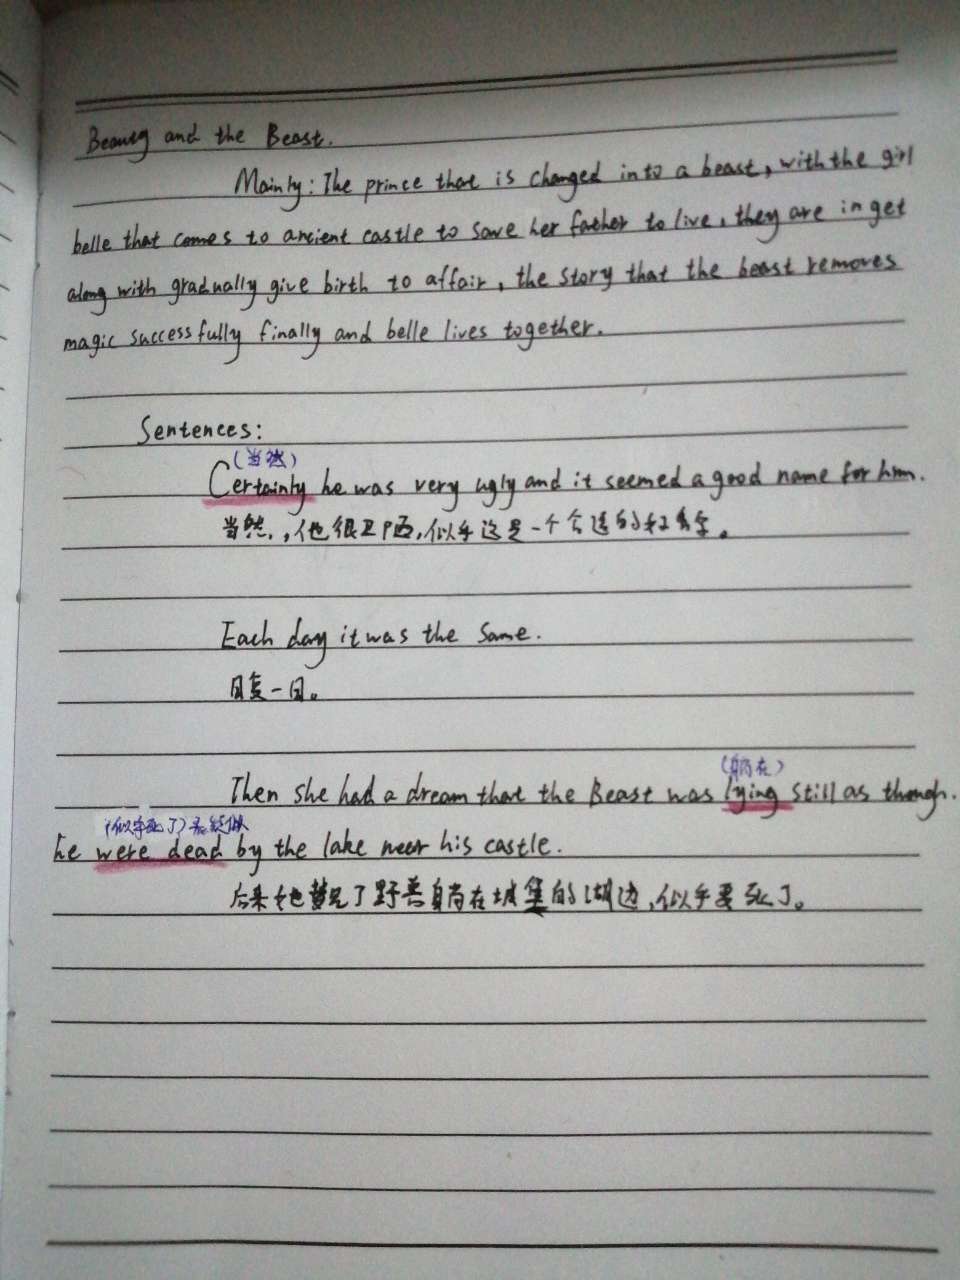 Beauty and the Beast.
Mainly: The prince that is changed into a beast, with the girl
belle that comes to ancient castle to save her father to live, they are in get
along with gradually give birth to affair, the story that the beast removes
magic successfully finally and belle lives together.
Sentences:
(当然)
Certainly he was very ugly and it seemed a good name for him.
当然,,他很丑陋,似乎这是一个合适的
Each day it was the same.
日复一日。
(躺在)
Then she had a dream that the Beast was lying still as though.
(似乎死了)
he were dead by the lake near his castle.
后来她梦见了野兽躺在城堡的湖边,似乎要死了。